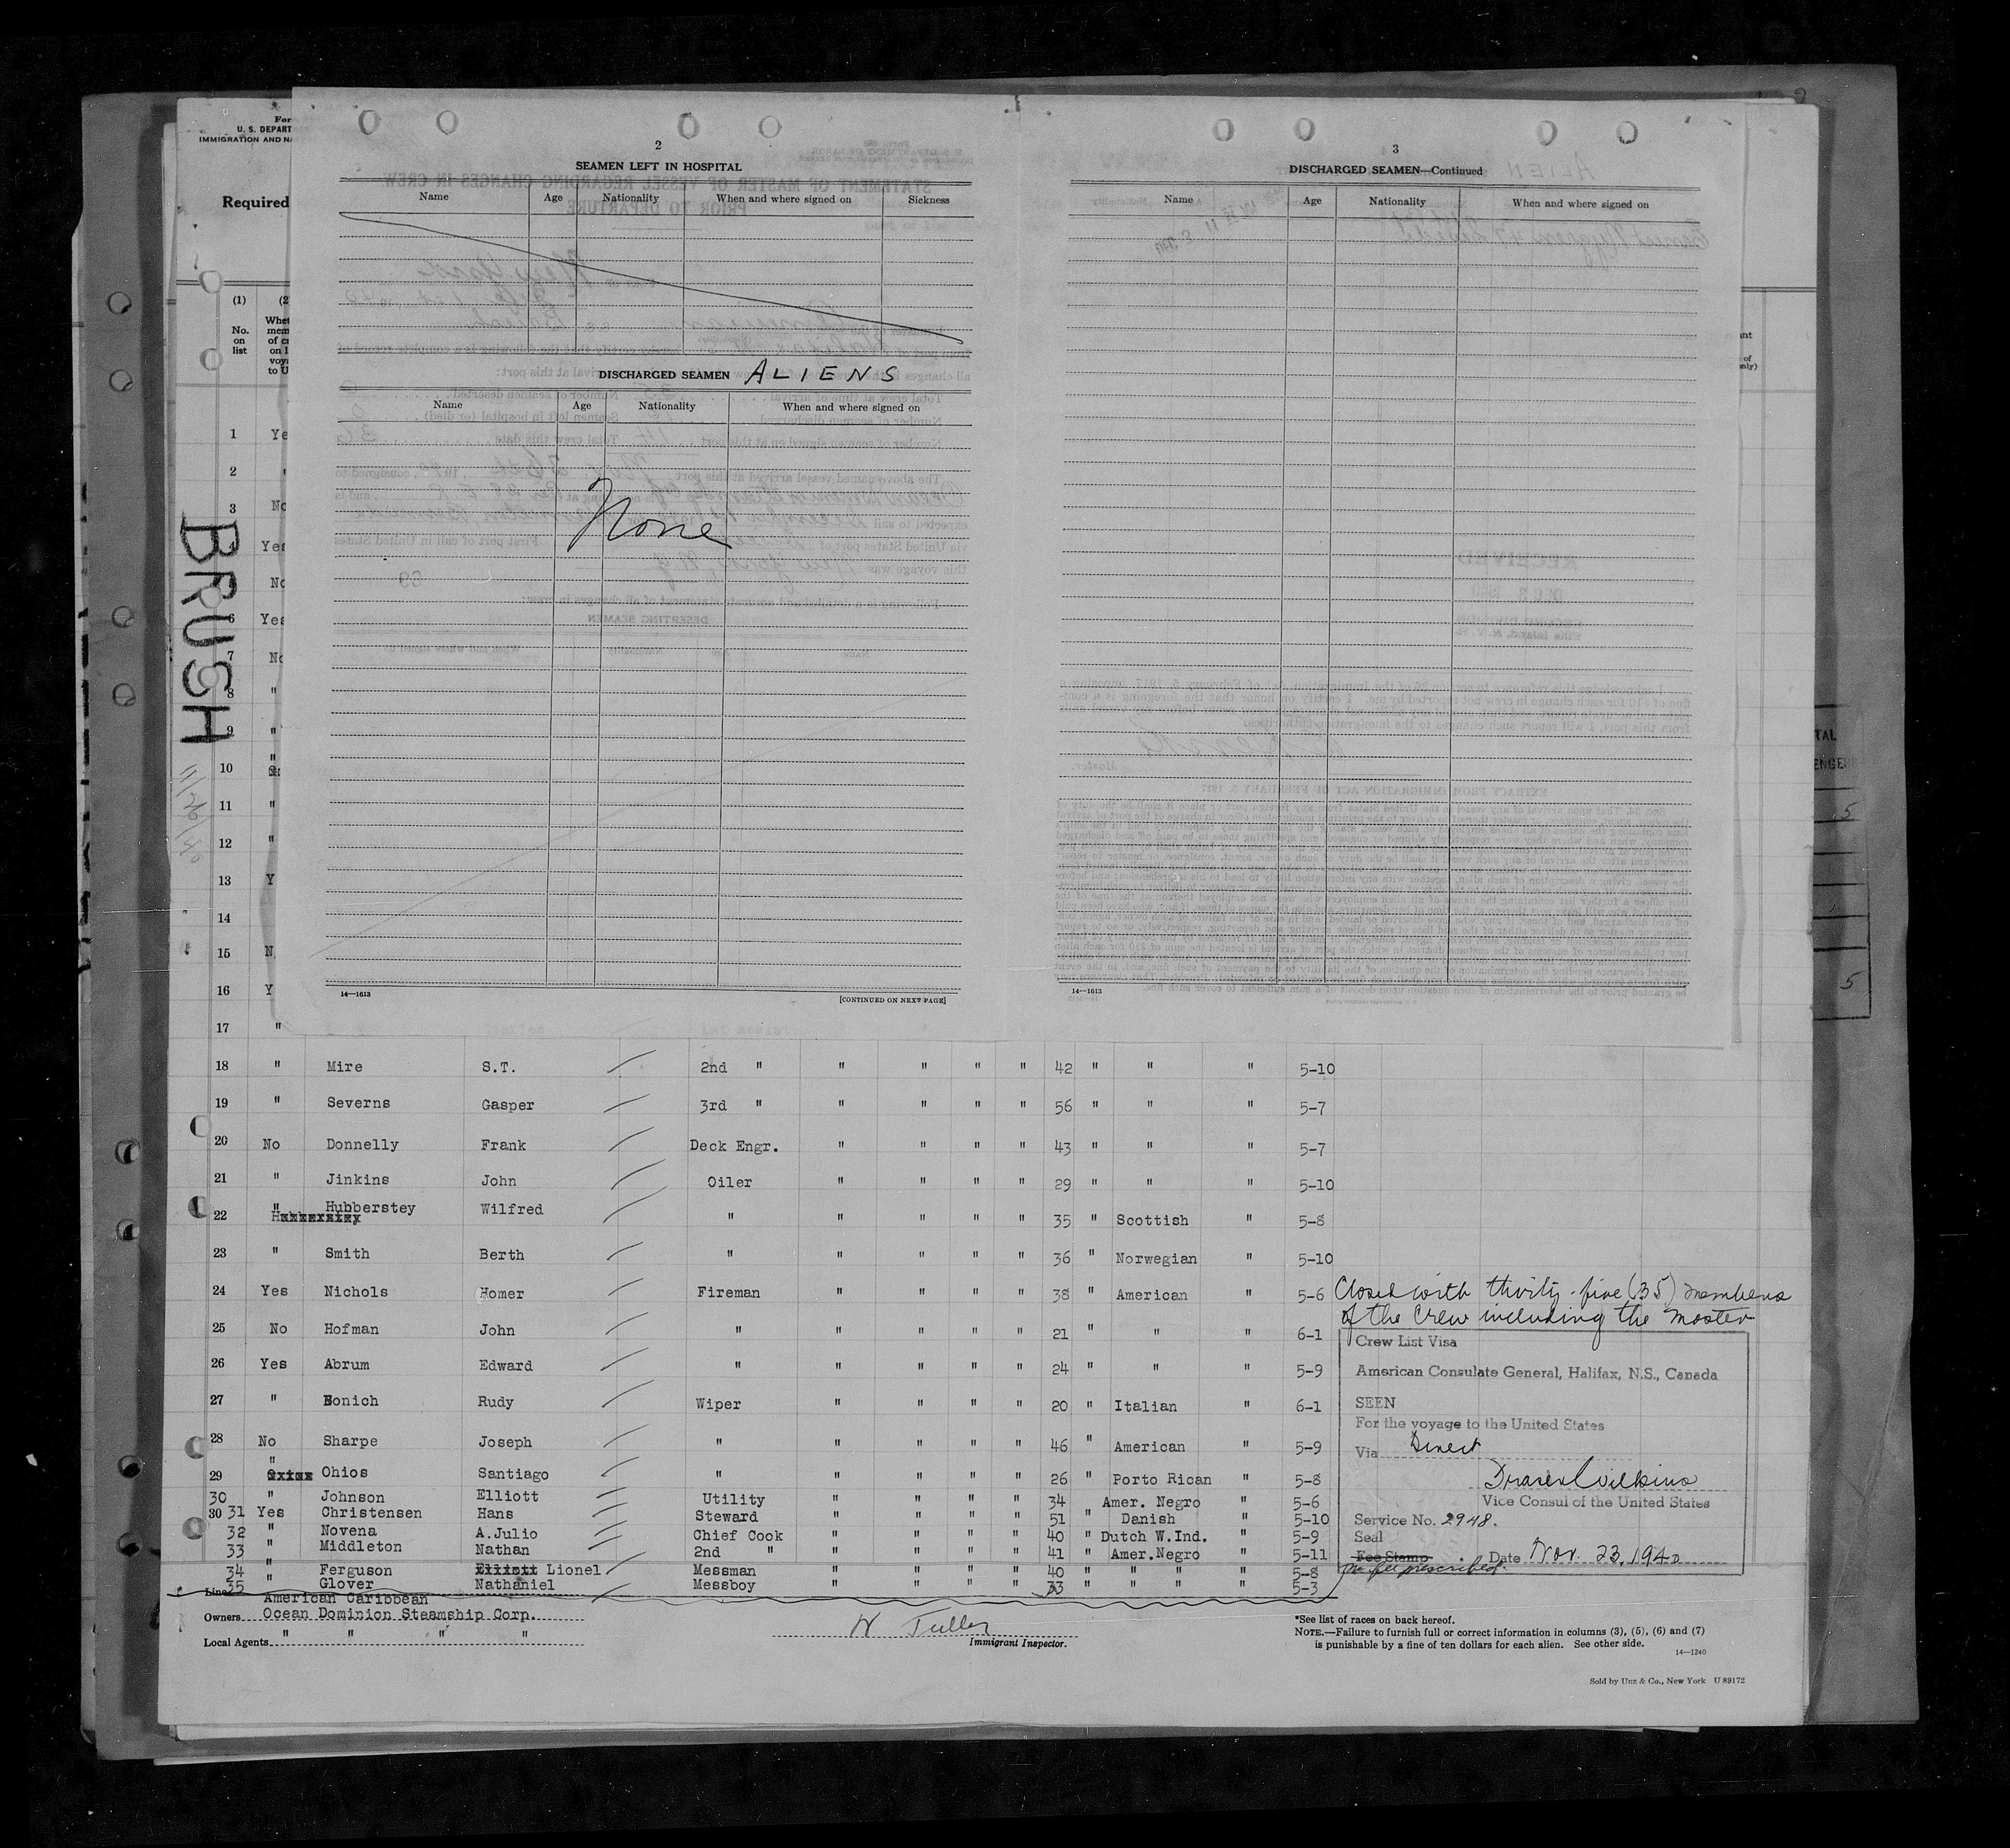 For
U. S. DEPART
IMMIGRATION AND NA
Required
2
SEAMEN LEFT IN HOSPITAL
Name Age Nationality When and where signed on Sickness
DISCHARGED SEAMEN ALIENS
Name Age Nationality When and where signed on
None
14—1613 [CONTINUED ON NEXT PAGE]
3
DISCHARGED SEAMEN—Continued
Name Age Nationality When and where signed on
14—1613
(1) (2
No. on list
Whet
mem
of cr
on l
voya
to U
BRUSH
11/26/40
TAL
ENGER
5
5
1 Ye
2 "
3 No
4 Yes
5 No
6 Yes
7 No
8 "
9 "
10 "
11 "
12 "
13 Y
14
15 N
16 Y
17 "
18 " Mire S.T. 2nd " " " " " 42 " " " 5-10
19 " Severns Gasper 3rd " " " " " 56 " " " 5-7
20 No Donnelly Frank Deck Engr. " " " " 43 " " " 5-7
21 " Jinkins John Oiler " " " " 29 " " " 5-10
22 " Hubberstey Wilfred " " " " " 35 " Scottish " 5-8
23 " Smith Berth " " " " " 36 " Norwegian " 5-10
24 Yes Nichols Homer Fireman " " " " 38 " American " 5-6
25 No Hofman John " " " " " 21 " " " 6-1
26 Yes Abrum Edward " " " " " 24 " " " 5-9
27 " Bonich Rudy Wiper " " " " 20 " Italian " 6-1
28 No Sharpe Joseph " " " " " 46 " American " 5-9
29 " Ohios Santiago " " " " " 26 " Porto Rican " 5-8
30 " Johnson Elliott Utility " " " " 34 Amer. Negro " 5-6
30 31 Yes Christensen Hans Steward " " " " 51 " Danish " 5-10
32 " Novena A.Julio Chief Cook " " " " 40 " Dutch W.Ind. " 5-9
33 " Middleton Nathan 2nd " " " " " 41 " Amer.Negro " 5-11
34 " Ferguson Elliott Lionel Messman " " " " 40 " " " " " 5-8
35 " Glover Nathaniel Messboy " " " " 33 " " " " " 5-3
Closed with thirty-five (35) members
of the Crew including the Master
Crew List Visa
American Consulate General, Halifax, N.S., Canada
SEEN
For the voyage to the United States
Via Direct
Vice Consul of the United States
Service No. 2948.
Seal
Fee Stamp Date Nov. 23, 1940
No fee prescribed.
Line American Caribbean
Owners Ocean Dominion Steamship Corp.
Local Agents " " " "
Immigrant Inspector.
*See list of races on back hereof.
NOTE.—Failure to furnish full or correct information in columns (3), (5), (6) and (7)
is punishable by a fine of ten dollars for each alien. See other side.
14—1240
Sold by Unz & Co., New York U 89172